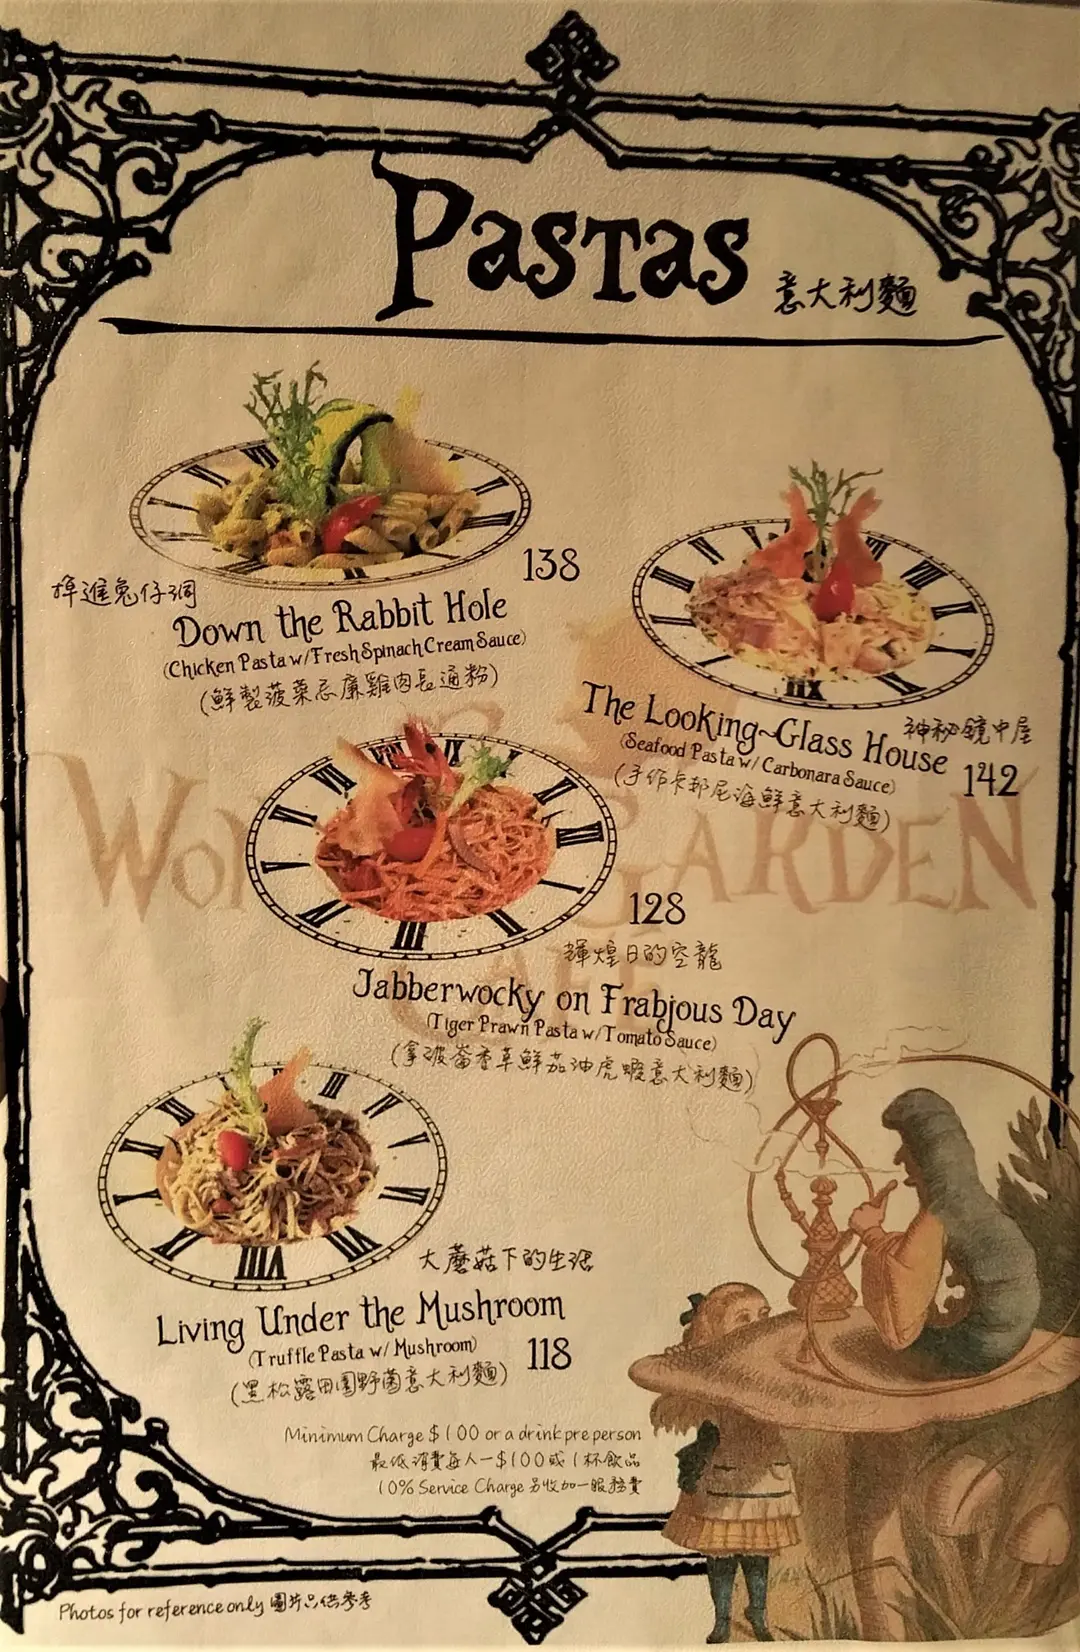 Pastas
意大利麵
138
掉進兔仔洞
Down the Rabbit Hole
(Chicken Pasta w/Fresh Spinach Cream Sauce)
(鮮製菠菜忌廉雞肉長通粉)
The Looking~Glass House
神秘鏡中屋
(Seafood Pasta w/ Carbonara Sauce)
142
(手作卡邦尼海鮮意大利麵)
WON GARDEN
128
輝煌日的空龍
Jabberwocky on Frabjous Day
(Tiger Prawn Pasta w/Tomato Sauce)
(拿破崙香草鮮茄油虎蝦意大利麵)
大蘑菇下的生活
Living Under the Mushroom
(Truffle Pasta w/ Mushroom)
118
(黑松露田園野菌意大利麵)
Minimum Charge $100 or a drink pre person
最低消費每人一$100或1杯飲品
10% Service Charge 另收加一服務費
Photos for reference only 圖片只供參考